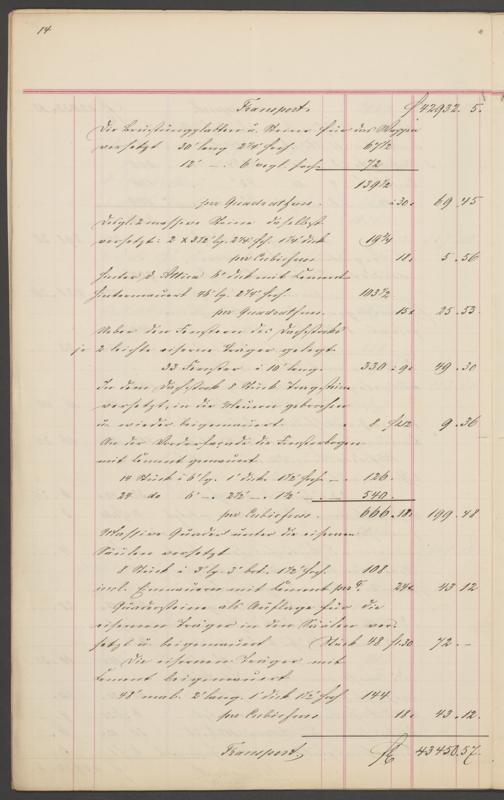 14
Transport. f 42932. 5.
Die Brüstungsplatten u. Steine für das Wappen
versetzt 30' lang 2¼' hoch. 67½
12' —. 6' vogl. hoch. 72
139½
per Quadratfuss. à 30. 69.45
Desgl. 2 massive Steine daselbst
versetzt: 2 x 3½' lg. 2¼' hch. 1¼' dick 19¾
per Cubicfuss 18. 5.56
Hinter d. Attica 6" dick mit Cement
hintermauert 46' lg. 2¼' hoch. 103½
per Quadratfuss. 15. 25.53
Ueber den Fenstern des Dachstocks
je 2 leichte eiserne Träger gelegt.
33 Fenster à 10' lang. 330 à 9. 49.30
In dem Dachstock 8 Stück Tragsteine
versetzt, in die Mauern gebrochen
u. wieder beigemauert. 8 9.36
An der Vorderfaçade die Fensterbogen
mit Cement gemauert
14 Stück à 6' lg. 1' dick 1½' hoch —. 126.
24 do 6' —. 2½' —. 1½' —. — 540.
per Cubicfuss. 666. 18. 199.48
Massive Quader unter die eisernen
Säulen versetzt
8 Stück à 3' lg. 3' bet. 1½' hoch 108
incl. Einmauern mit Cement per 24. 43 12
Quadersteine als Auflage für die
eisernen Träger in den Säulen ver-
setzt u. beigemauert Stück 48 72.—
Die eisernen Träger mit
Cement beigemauert
48 mal. 2' lang. 1' dick 1½' hoch 144
per Cubicfuss 18. 43.12.
Transport, f 43450.57.